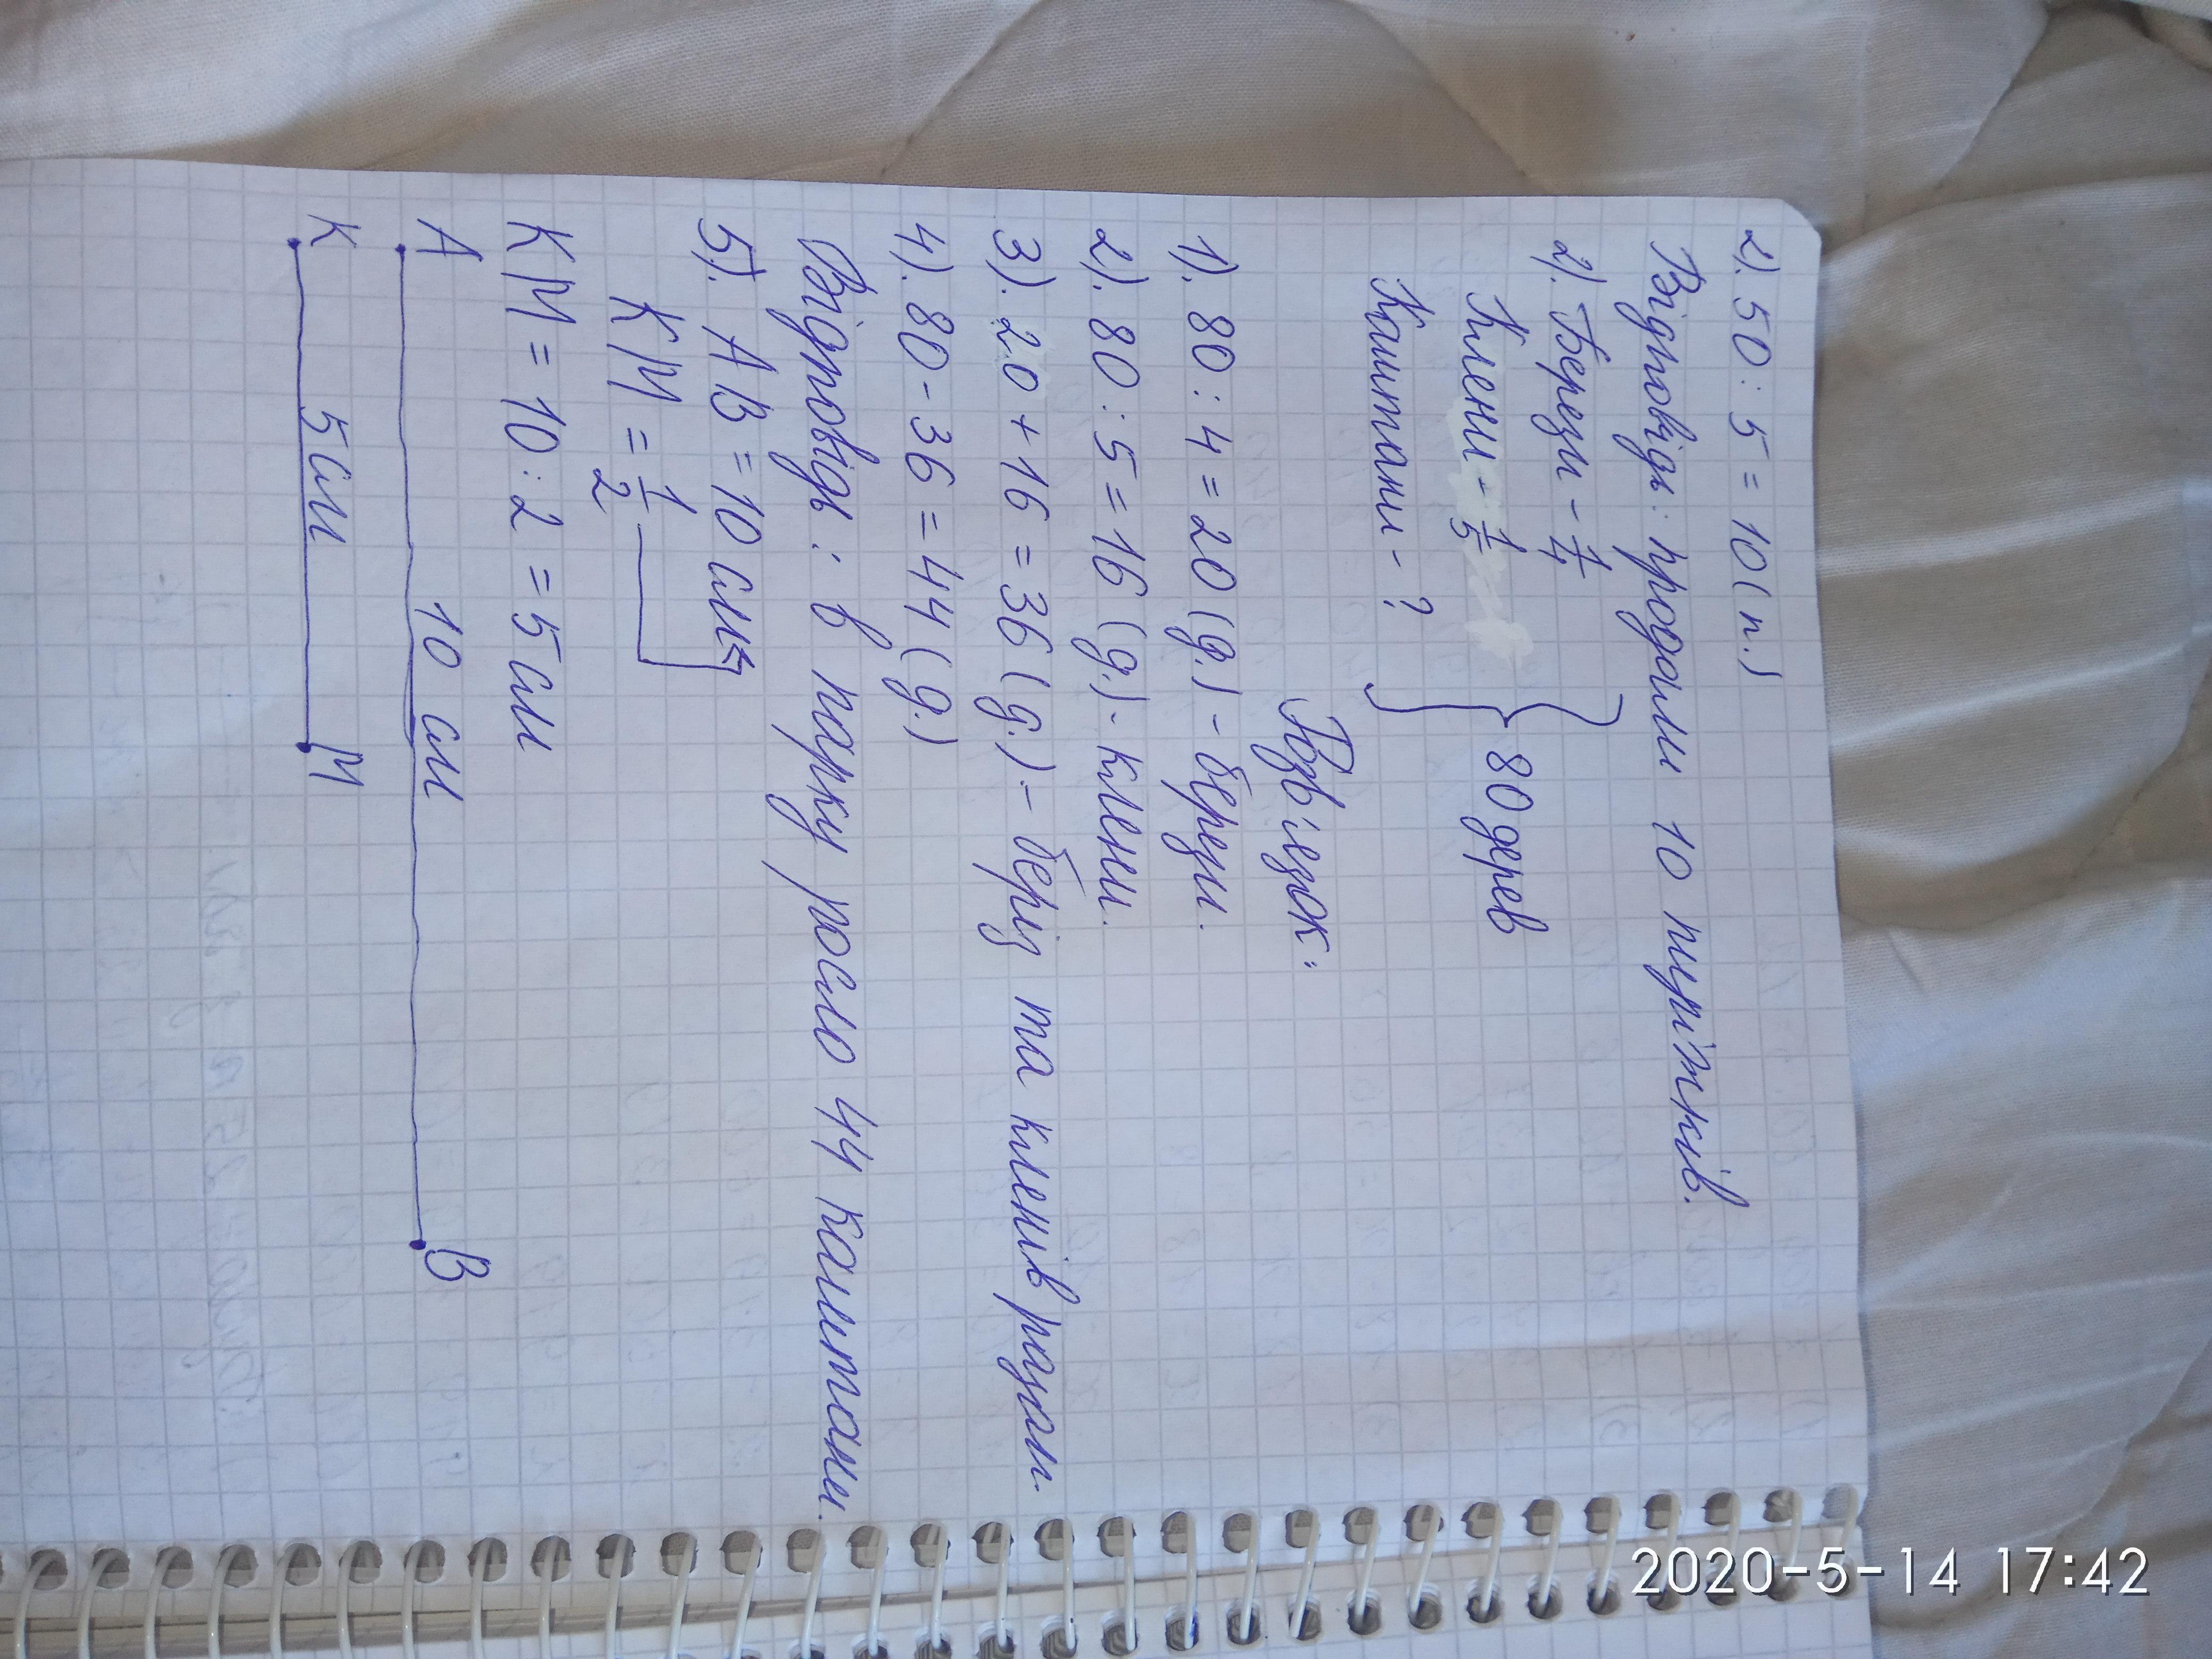 2). 50 : 5 = 10 (п.)
Відповідь: продали 10 пиріжків.
2). Берези - 1/4
Клени - 1/5
Каштани - ?
80 дерев
Розв'язок:
1). 80 : 4 = 20 (д.) - берези.
2). 80 : 5 = 16 (д.) - клени.
3). 20 + 16 = 36 (д.) - беріз та кленів разом.
4). 80 - 36 = 44 (д.)
Відповідь: в парку росло 44 каштани.
5). AB = 10 см
KM = 1/2
KM = 10 : 2 = 5 см
A 10 см B
K 5 см M
2020-5-14 17:42